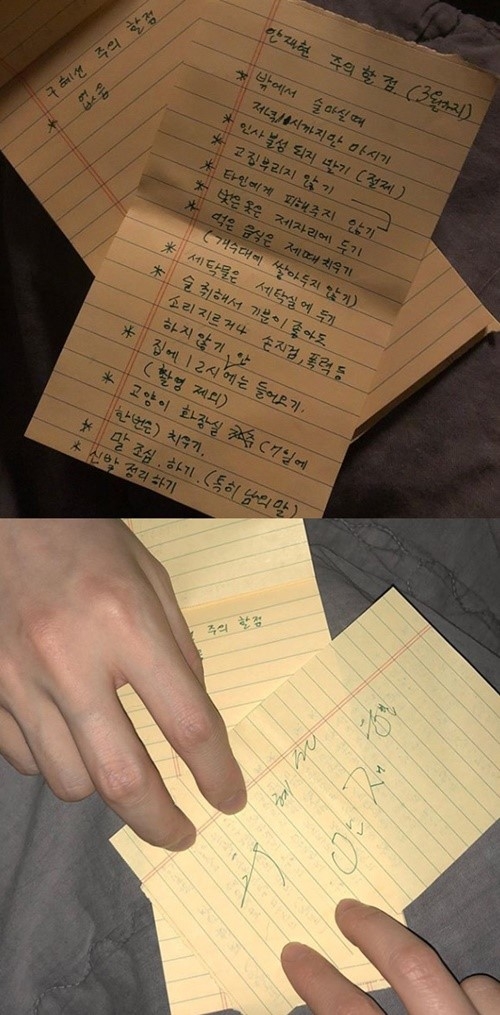 구혜선 주의 할점
* 없음
안재현 주의할 점 (3월까지)
* 밖에서 술마실때
저녁 시까지만 마시기
* 인사불성 되지 말기 (절제)
* 고집부리지 않기
* 타인에게 피해주지 않기
* 벗은 옷은 제자리에 두기
* 먹은 음식은 제때 치우기
(개수대에 쌓아두지 않기)
* 세탁물은 세탁실에 두기
* 술 취해서 기분이 좋아도
소리지르거나 손지검, 폭력 등
하지 않기
* 집에 12시 안에는 들어오기.
(촬영 제외)
* 고양이 화장실 (7일에
한번은) 치우기.
* 말 조심. 하기. (특히 남의 말)
* 신발 정리하기
주의 할점
구혜선
안재현